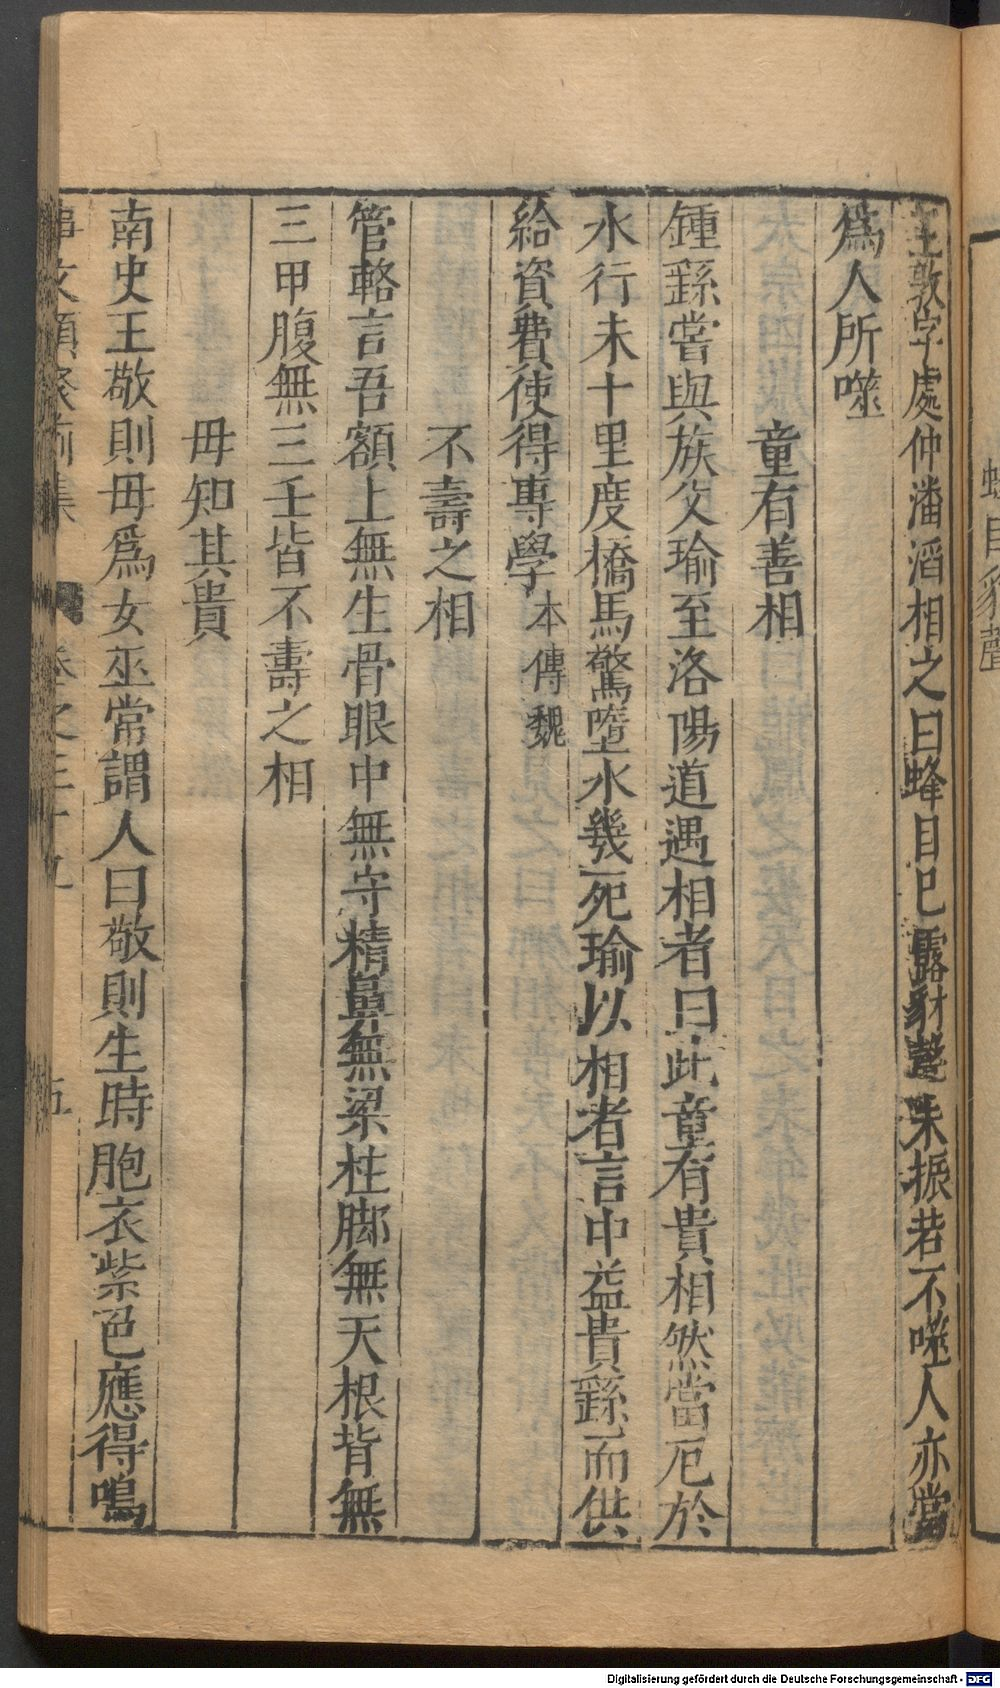 蜂目豺聲
王敦字處仲潘滔相之曰蜂目巳露豺聲未振若不噬人亦當
爲人所噬
童有善相
鍾繇嘗與族父瑜至洛陽道遇相者曰此童有貴相然當厄於
水行未十里度橋馬驚墮水幾死瑜以相者言中益貴繇而供
給資費使得專學本傳魏
不壽之相
管輅言吾額上無生骨眼中無守精鼻無梁柱脚無天根背無
三甲腹無三壬皆不壽之相
毋知其貴
南史王敬則毋爲女巫常謂人曰敬則生時胞衣紫色應得鳴
事文類聚前集 卷之三十九 五
Digitalisierung gefördert durch die Deutsche Forschungsgemeinschaft - DFG